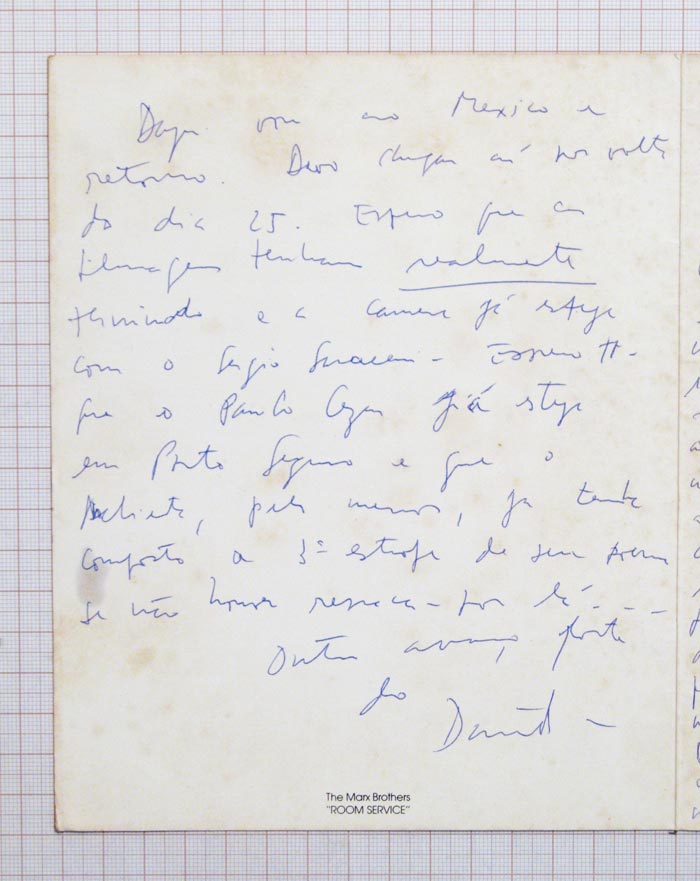 Daqui vou ao Mexico e
retorno. Devo chegar aí por volta
do dia 25. Espero que as
filmagens tenham realmente
terminado e a camera já esteja
com o Sergio Saraceni – Espero tb-
que o Paulo Cezar já esteja
em Porto Seguro e que o
Anchieta, pelo menos, já tenha
composto a 3ª estrofe de seu poema
se não houver ressaca – por lá. - -
Outro abraço forte
do
David –
The Marx Brothers
"ROOM SERVICE"